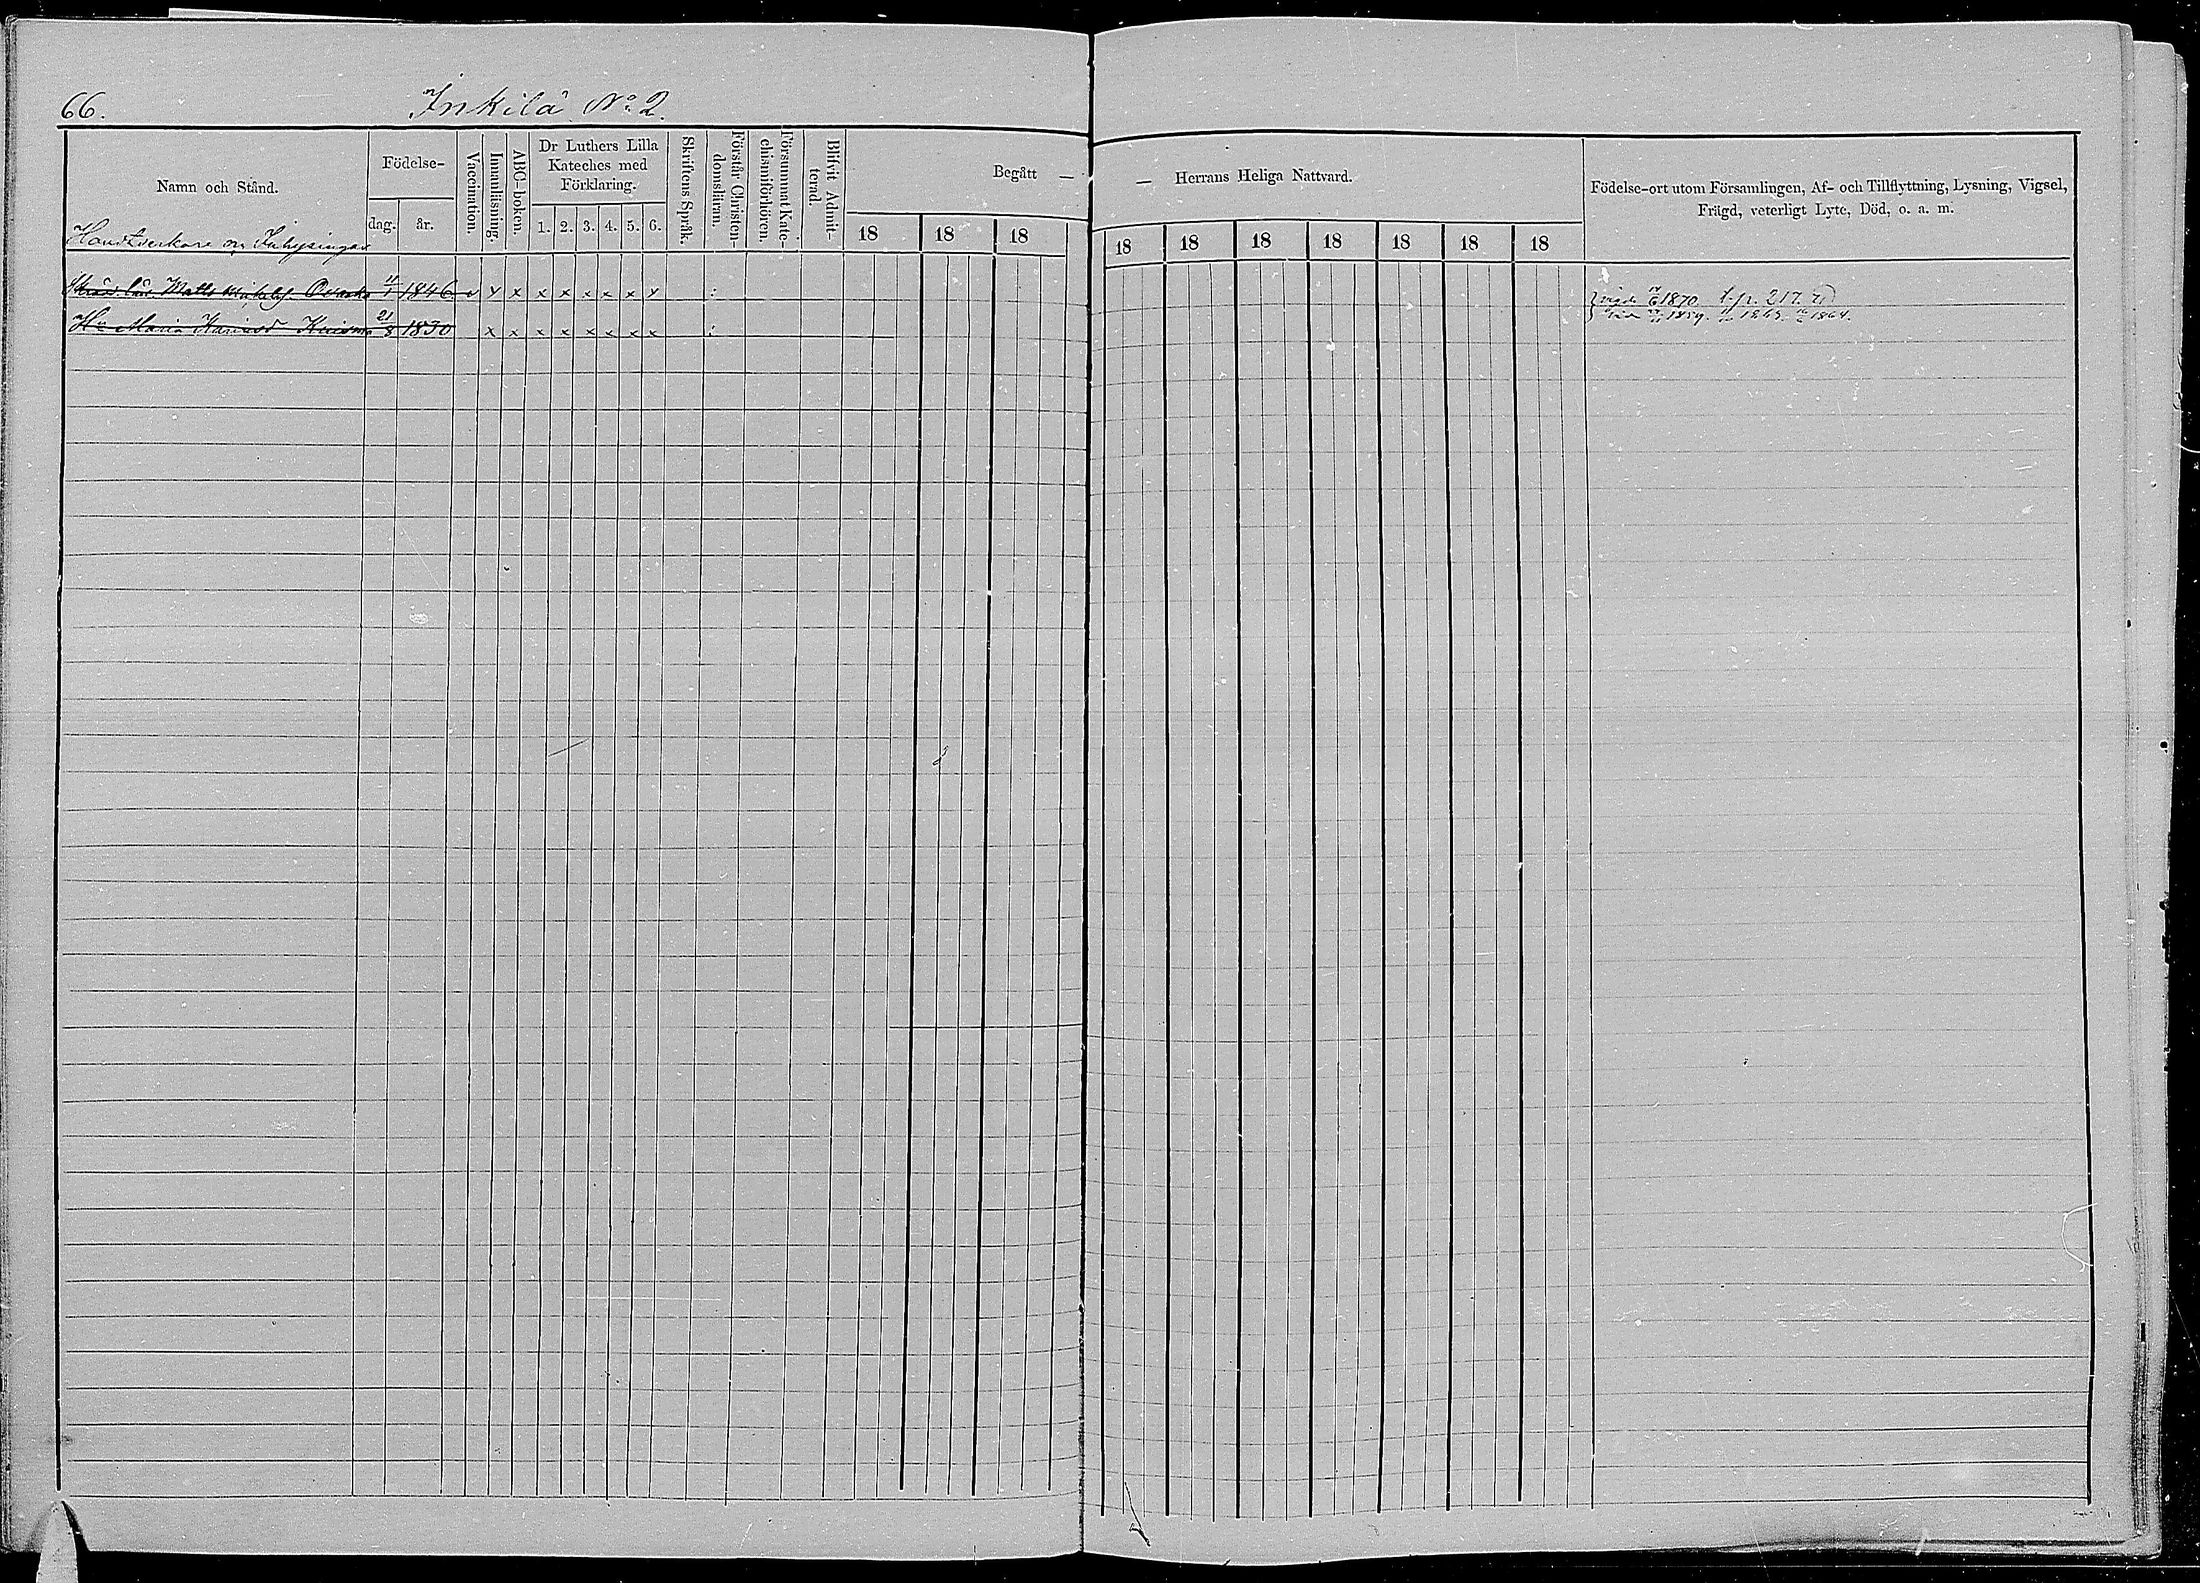 66. Inkilä No 2.
Namn och Stånd.
Födelse-
dag. år.
Vaccination.
Innanläsning.
ABC-boken
Dr Luthers Lilla
Kateches med
Förklaring.
1. 2. 3. 4. 5. 6.
Skriftens Språk.
Förstår Christen-
domsläran.
Försummat Kate-
chismiförhören.
Blifvit Admit-
terad.
Begått —
18 18 18
— Herrans Heliga Nattvard.
18 18 18 18 18 18 18
Födelse-ort utom Församlingen, Af- och Tillflyttning, Lysning, Vigsel,
Frägd, veterligt Lyte, Död, o. a. m.
Handtverkare o. Inhysingar
Matts 4/1 1846 v x x x x x x x x : 1870 l. p. 217.
Hu Maria 21/8 1830 x x x x x x x x : 1859. 1864.